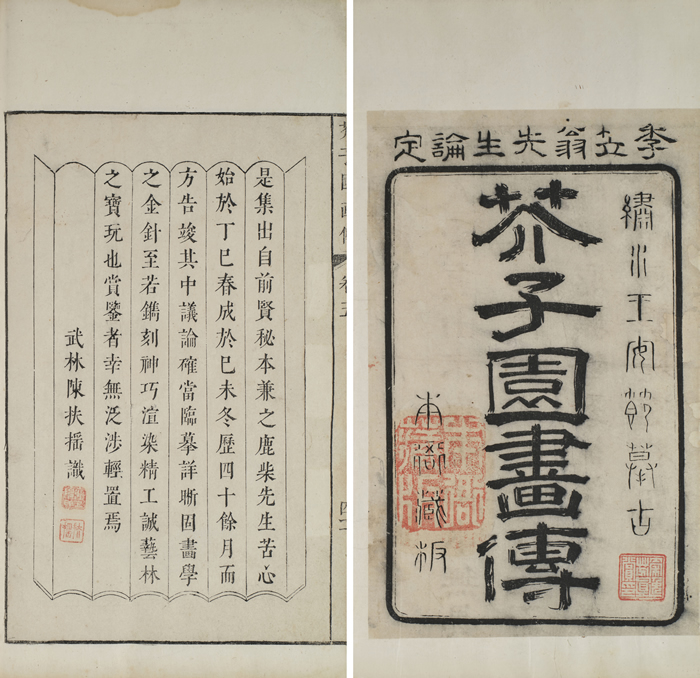 李笠翁先生論定
繡水王安節摹古
芥子園畫傳
本衙藏板
芥子園畫傳
卷五
是集出自前賢秘本兼之鹿柴先生苦心
始於丁巳春成於己未冬歷四十餘月而
方告竣其中議論確當臨摹詳晰固畫學
之金針至若鐫刻神巧渲染精工誠藝林
之寶玩也賞鑒者幸無泛涉輕置焉
武林陳扶搖識